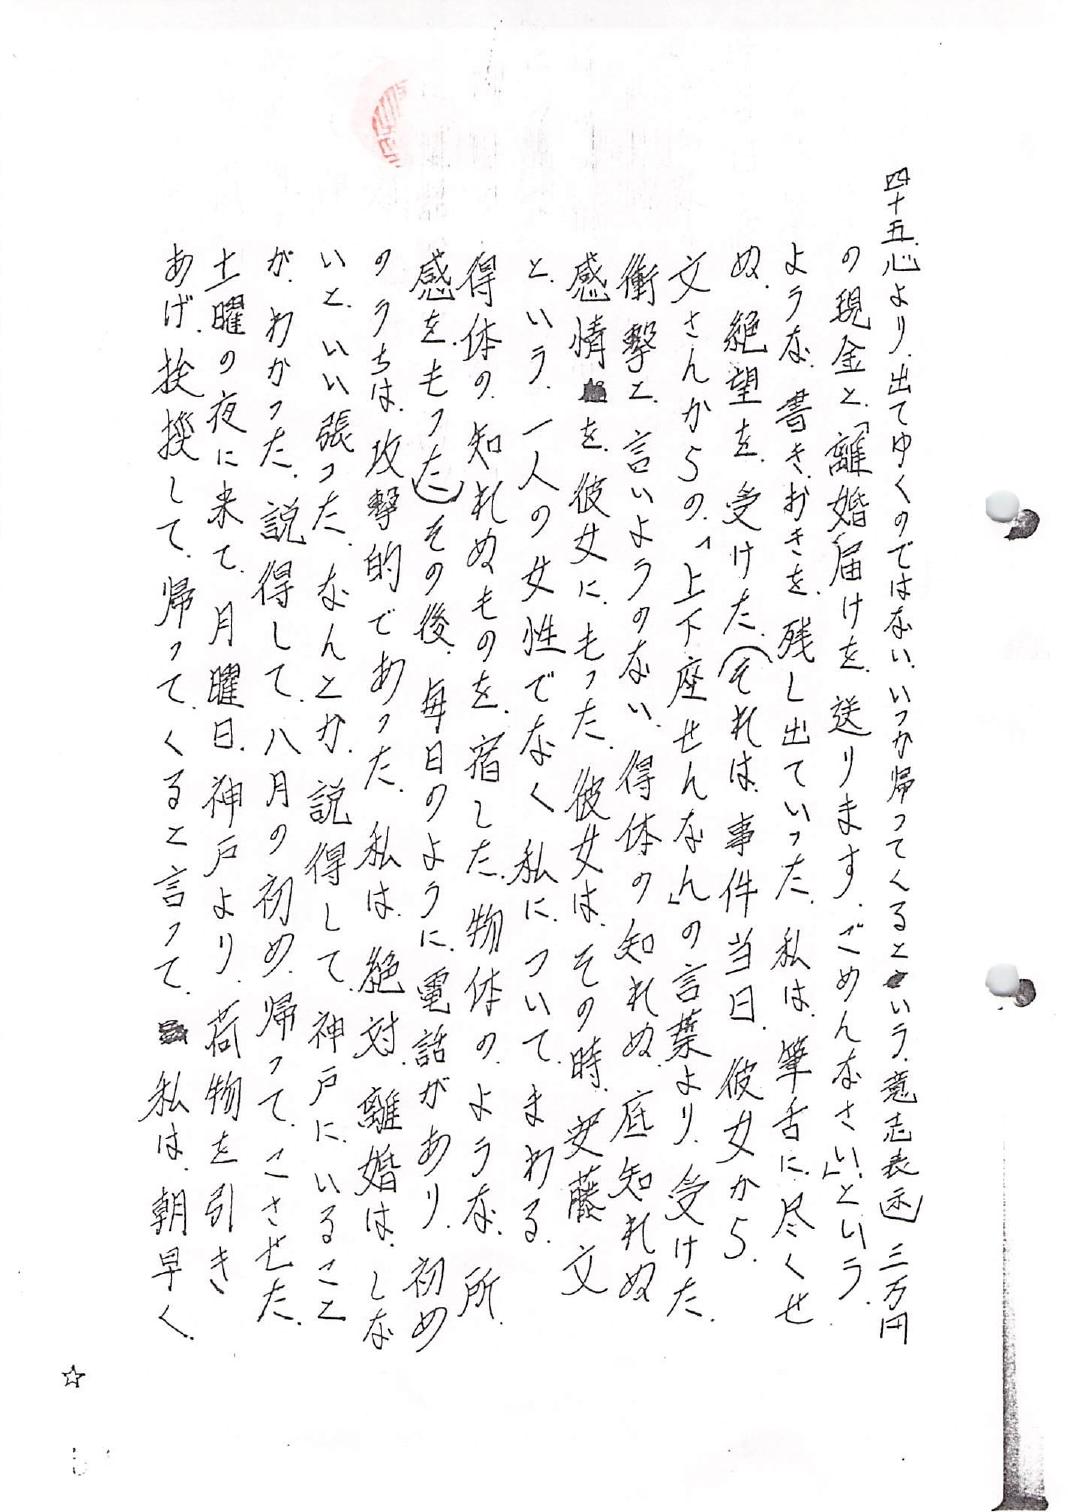 四十五、心より、出てゆくのではない、いつか帰ってくるという、意志表示)三万円
の現金と、「離婚届けを、送ります、ごめんなさい、」という、
ような、書き、おきを、残し出ていった、私は、筆舌に、尽くせ
ぬ、絶望を、受けた、(それは、事件当日、彼女から、
文さんからの、「上下座せんなん」の言葉より、受けた、
衝撃と、言いようのない、得体の知れぬ、底知れぬ
感情を、彼女に、もった、彼女は、その時、安藤文
と、いう、一人の女性でなく、私に、ついて、まわる
得体の、知れぬものを、宿した、物体の、ような、所
感をもった)その後、毎日のように、電話があり、初め
のうちは、攻撃的であった、私は、絶対、離婚は、しな
いと、いい張った、なんとか、説得して、神戸に、いること
が、わかった、説得して、八月の初め、帰って、こさせた、
土曜の夜に来て、月曜日、神戸より、荷物を引き
あげ、挨拶して、帰ってくると言って、私は、朝早く、
☆